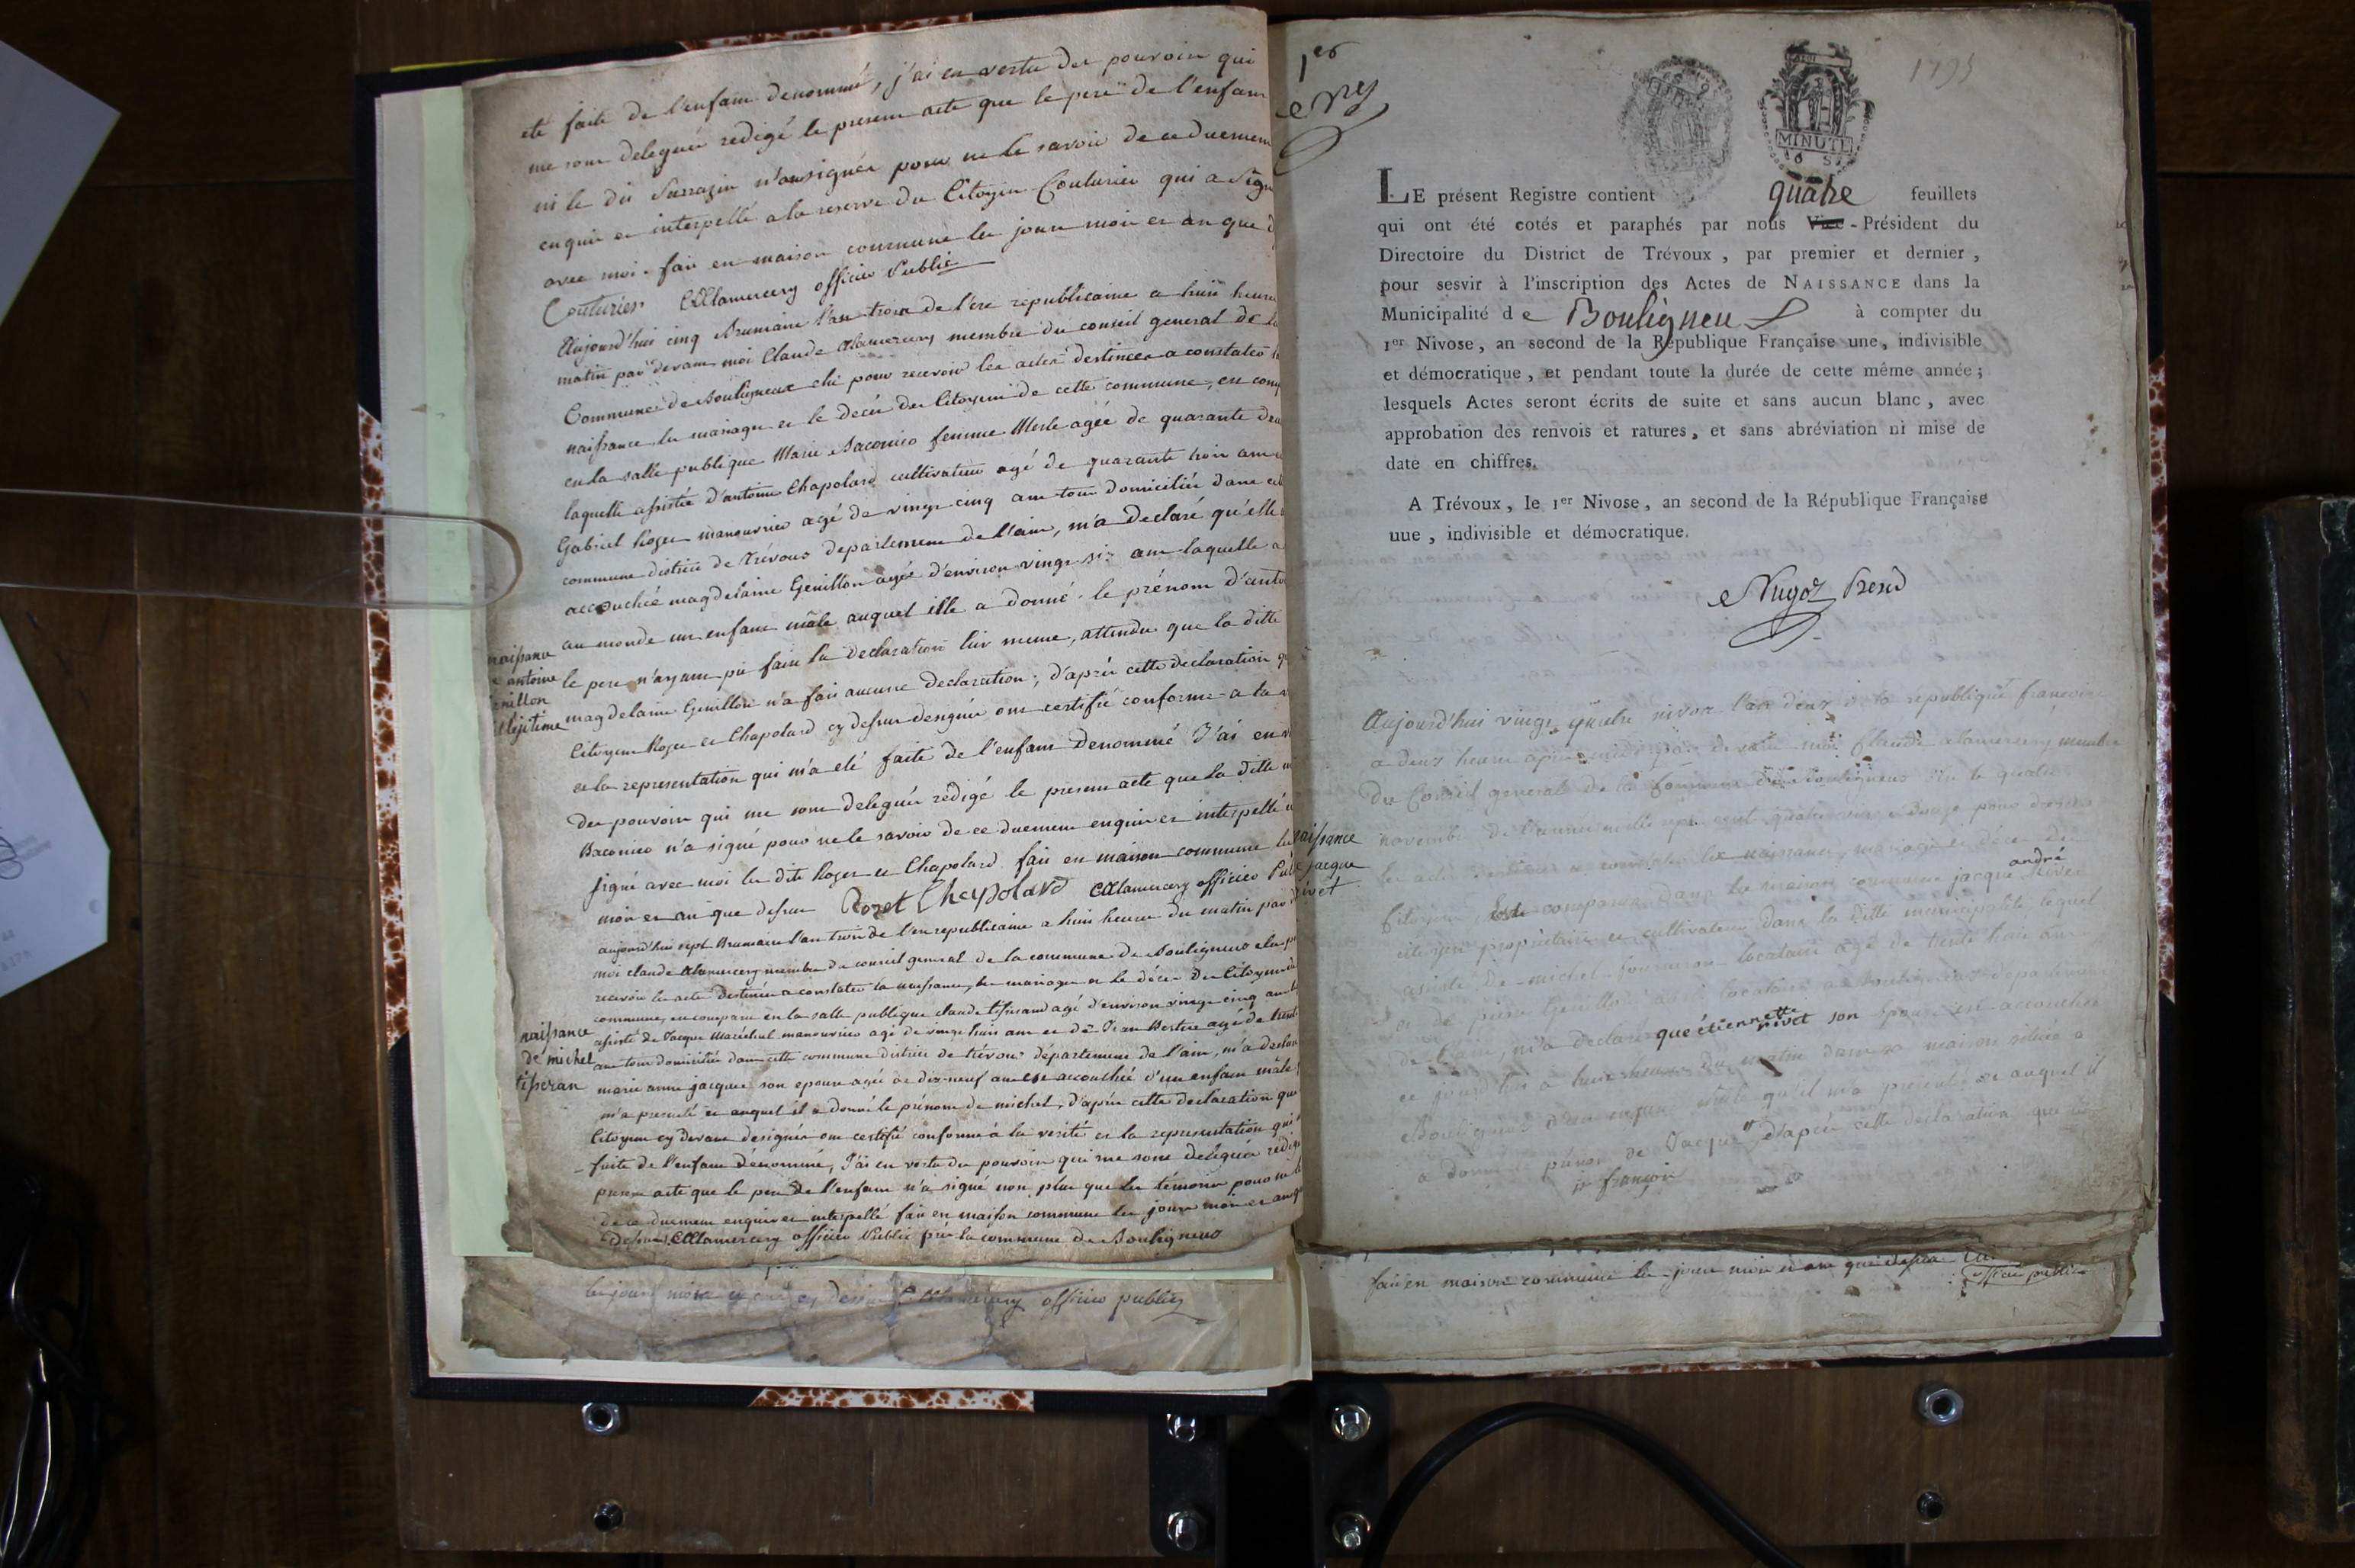 été faite de l'enfant denommé, j'ai en vertu des pouvoirs qui
me sont delegués redigé le present acte que le pere de l'enfant
ni le dit Sarrazin n'ont signés pour ne le savoir de ce duement
enquis et interpellé a la reserve du Citoyen Couturier qui a signé
avec moi. fait en maison commune les jours mois et an que d
Couturier CAlamercery officier Public
Aujourd'hui cinq Brumaire l'an trois de l'ere republicaine a huit heures
matin par devant moi Claude Alamercery membre du conseil general de la
Commune de Bouligneux elu pour recevoir les actes destinees a constater
naissance les mariages et le decès des Citoyens de cette commune, est comp
en la salle publique Marie Baconier femme Merle agée de quarante deux
laquelle assistée d'antoine Chapolard cultivateur agé de quarante trois ans
Gabriel Roger manouvrier agé de vingt cinq ans tous domiciliés dans cette
commune district de Trévoux departement de l'ain, m'a declaré qu'elle
accouchée magdelaine Genillon agée d'environ vingt six ans laquelle a
au monde un enfant mâle auquel elle a donné le prénom d'anto
naissance
antoine
enillon
illegitime
le pere n'ayant pu faire la declaration lui meme, attendu que la ditte
magdelaine Genillon n'a fait aucune declaration; d'après cette declaration q
Citoyens Roger et Chapolard cy dessus designés ont certifié conforme a la
et la representation qui m'a été faite de l'enfant denommé J'ai en
des pouvoirs qui me sont delegués redigé le present acte que la ditte
Baconier n'a signé pour ne le savoir de ce duement enquis et interpellé
signé avec moi les dits Roger et Chapolard fait en maison commune les
mois et an que dessus Rozet Cheypolard CAlamercery officier Pub
aujourd'hui sept Brumaire l'an trois de l'ere republicaine a huit heures du matin par
moi claude Alamercery membre du conseil general de la commune de Bouligneux elu p
recevoir les actes destinés a constater la naissance, les mariages et le décès des Citoyens de
commune, est comparu en la salle publique claude tisserand agé d'environ vingt cinq ans
naissance
de michel
tisseran
assisté de Jacque Maréchal manouvrier agé de vingt huit ans et de Jean Bertier agé de trente
ans tous domiciliés dans cette commune district de trévoux département de l'ain, m'a declaré
marie anne jacquet son epouse agée de dix-neuf ans est accouchée d'un enfant mâle
m'a presenté et auquel il a donné le prénom de michel, d'après cette declaration que
Citoyens cy devant designés ont certifié conforme à la verité et la representation qui
faite de l'enfant dénommé, J'ai en vertu des pouvoirs qui me sont delegués redigé
present acte que le pere de l'enfant n'a signé non plus que les témoins pour ne
de ce duement enquis et interpellé fait en maison commune les jours mois et an que
dessus CAlamercery officier Public pour la commune de Bouligneux
les jours mois et an cy dessus CAlamercery officier public
1er
1793
MINUTE
LE présent Registre contient quatre feuillets
qui ont été cotés et paraphés par nous Vice-Président du
Directoire du District de Trévoux, par premier et dernier,
pour sesvir à l'inscription des Actes de NAISSANCE dans la
Municipalité de Bouligneu à compter du
1er Nivose, an second de la République Française une, indivisible
et démocratique, et pendant toute la durée de cette même année;
lesquels Actes seront écrits de suite et sans aucun blanc, avec
approbation des renvois et ratures, et sans abréviation ni mise de
date en chiffres.
A Trévoux, le 1er Nivose, an second de la République Française
uue, indivisible et démocratique.
Aujourd'hui vingt quatre nivose l'an deux de la republique francoise
a deux heures après midi par devant moi Claude alamercery membre
du Conseil general de la Commune de Bouligneux elu le quatre
novembre de l'année mille sept cent quatre vingt douze pour dresser
naissance
jacque
rivet
les actes destinés a constater les naissances, mariages et deces des
andré
Citoyens est comparu dans la maison commune jacque Rivet
citoyen proprietaire et cultivateur dans la ditte municipalité lequel
assisté de michel locataire agé de trente huit ans
et de pierre Genillon locataire a Bouligneux departement
de l'ain, m'a declaré que étiennette rivet son epouse est accouchée
ce jourd'hui a huit heures du matin dans sa maison située a
Bouligneux d'un enfant male qu'il m'a presenté et auquel il
a donné le prénom de Jacque, d'apres cette declaration que
françois
fait en maison commune les jours mois et an que dessus
officier public